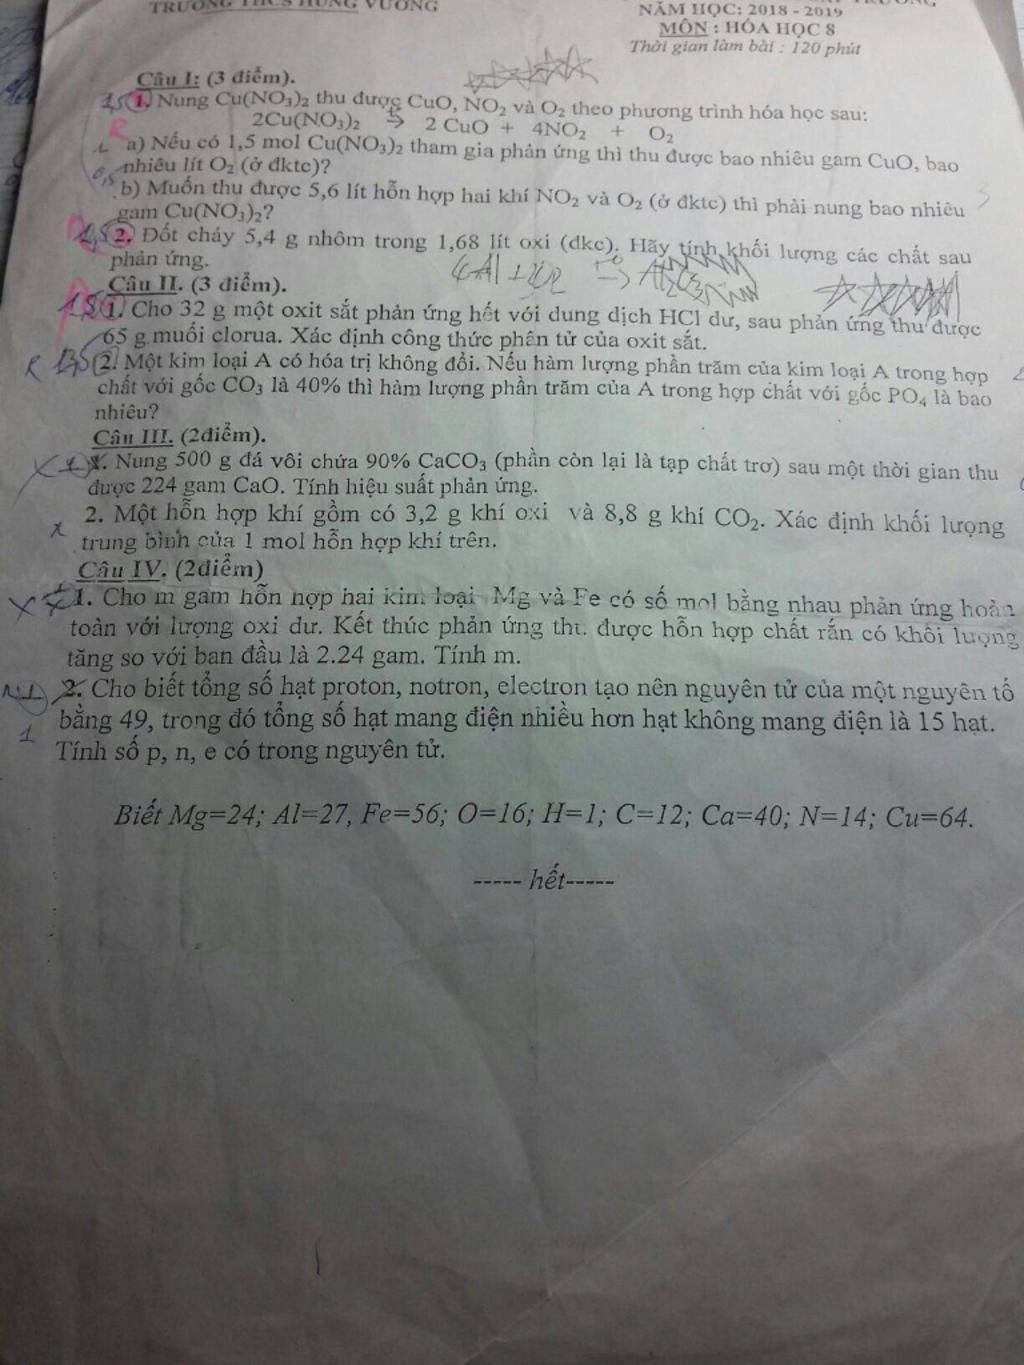 TRƯỜNG THCS HÙNG VƯƠNG
NĂM HỌC: 2018 - 2019
MÔN : HÓA HỌC 8
Thời gian làm bài : 120 phút
Câu I: (3 điểm).
1. Nung Cu(NO₃)₂ thu được CuO, NO₂ và O₂ theo phương trình hóa học sau:
2Cu(NO₃)₂ → 2 CuO + 4NO₂ + O₂
a) Nếu có 1,5 mol Cu(NO₃)₂ tham gia phản ứng thì thu được bao nhiêu gam CuO, bao
nhiêu lít O₂ (ở đktc)?
b) Muốn thu được 5,6 lít hỗn hợp hai khí NO₂ và O₂ (ở đktc) thì phải nung bao nhiêu
gam Cu(NO₃)₂?
2. Đốt cháy 5,4 g nhôm trong 1,68 lít oxi (đkc). Hãy tính khối lượng các chất sau
phản ứng.
4Al + 3O₂ → Al₂O₃
Câu II. (3 điểm).
1,5 1. Cho 32 g một oxit sắt phản ứng hết với dung dịch HCl dư, sau phản ứng thu được
65 g muối clorua. Xác định công thức phân tử của oxit sắt.
R 2. Một kim loại A có hóa trị không đổi. Nếu hàm lượng phần trăm của kim loại A trong hợp
chất với gốc CO₃ là 40% thì hàm lượng phần trăm của A trong hợp chất với gốc PO₄ là bao
nhiêu?
Câu III. (2điểm).
1. Nung 500 g đá vôi chứa 90% CaCO₃ (phần còn lại là tạp chất trơ) sau một thời gian thu
được 224 gam CaO. Tính hiệu suất phản ứng.
2. Một hỗn hợp khí gồm có 3,2 g khí oxi và 8,8 g khí CO₂. Xác định khối lượng
trung bình của 1 mol hỗn hợp khí trên.
Câu IV. (2điểm)
1. Cho m gam hỗn hợp hai kim loại Mg và Fe có số mol bằng nhau phản ứng hoàn
toàn với lượng oxi dư. Kết thúc phản ứng thu được hỗn hợp chất rắn có khối lượng
tăng so với ban đầu là 2.24 gam. Tính m.
2. Cho biết tổng số hạt proton, notron, electron tạo nên nguyên tử của một nguyên tố
1 bằng 49, trong đó tổng số hạt mang điện nhiều hơn hạt không mang điện là 15 hạt.
Tính số p, n, e có trong nguyên tử.
Biết Mg=24; Al=27, Fe=56; O=16; H=1; C=12; Ca=40; N=14; Cu=64.
----- hết-----